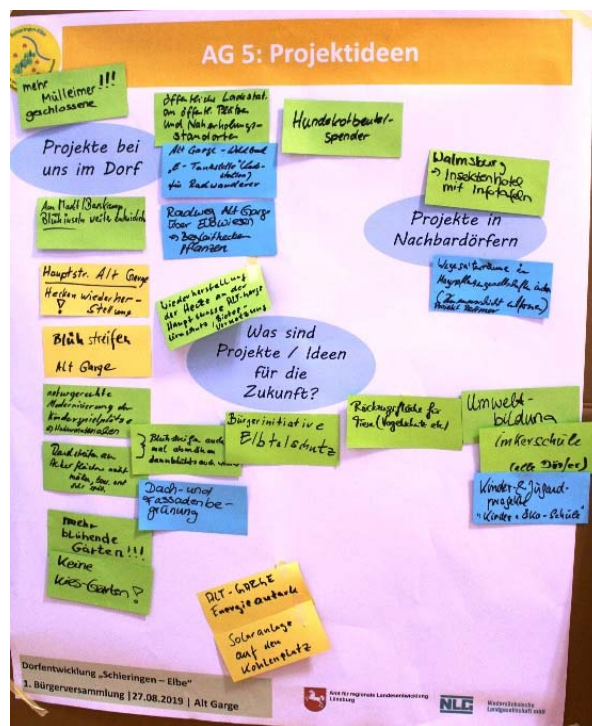 AG 5: Projektideen
mehr
Mülleimer!!!
geschlossene
Projekte bei
uns im Dorf
öffentliche Ladestat.
an öffentl. Plätzen
und Naherholungs-
standorten
Alt Garge - Waldbad
"E-Tankstelle"
für Radwanderer
Radweg Alt Garge
über Elbwiesen
→ Begleithecken
pflanzen
Hundekotbeutel-
spender
Walmsburg
→ Insektenhotel
mit Infotafeln
Projekte in
Nachbardörfern
Wegeseitenräume in
Hauptstr. Alt Garge
Hecken wiederher-
stellung
Blühstreifen
Alt Garge
Wiederherstellung
der Hecke an der
Hauptstrasse Alt-Garge
Vernetzung
Was sind
Projekte / Ideen
für die
Zukunft?
naturgerechte
Modernisierung der
Kinderspielplätze
Naturmaterialien
Blühstreifen auch
mal abmähen
Bürgerinitiative
Elbtalschutz
Rückzugsfläche für
Tiere (Vogelschutz etc)
Umwelt-
bildung
Imkerschule
(alle Dörfer)
Kinder- & Jugend-
projekte
"Kinder - Öko-Schule"
Dach- und
Fassadenbe-
grünung
mehr
blühende
Gärten!!!
Keine
Kies-Gärten!
ALT-GARGE
Energieautark
Solaranlage
auf den
Kohlenplatz
Dorfentwicklung „Schieringen – Elbe“
1. Bürgerversammlung | 27.08.2019 | Alt Garge
Amt für regionale Landesentwicklung
Lüneburg
NLG
Niedersächsische
Landgesellschaft mbH